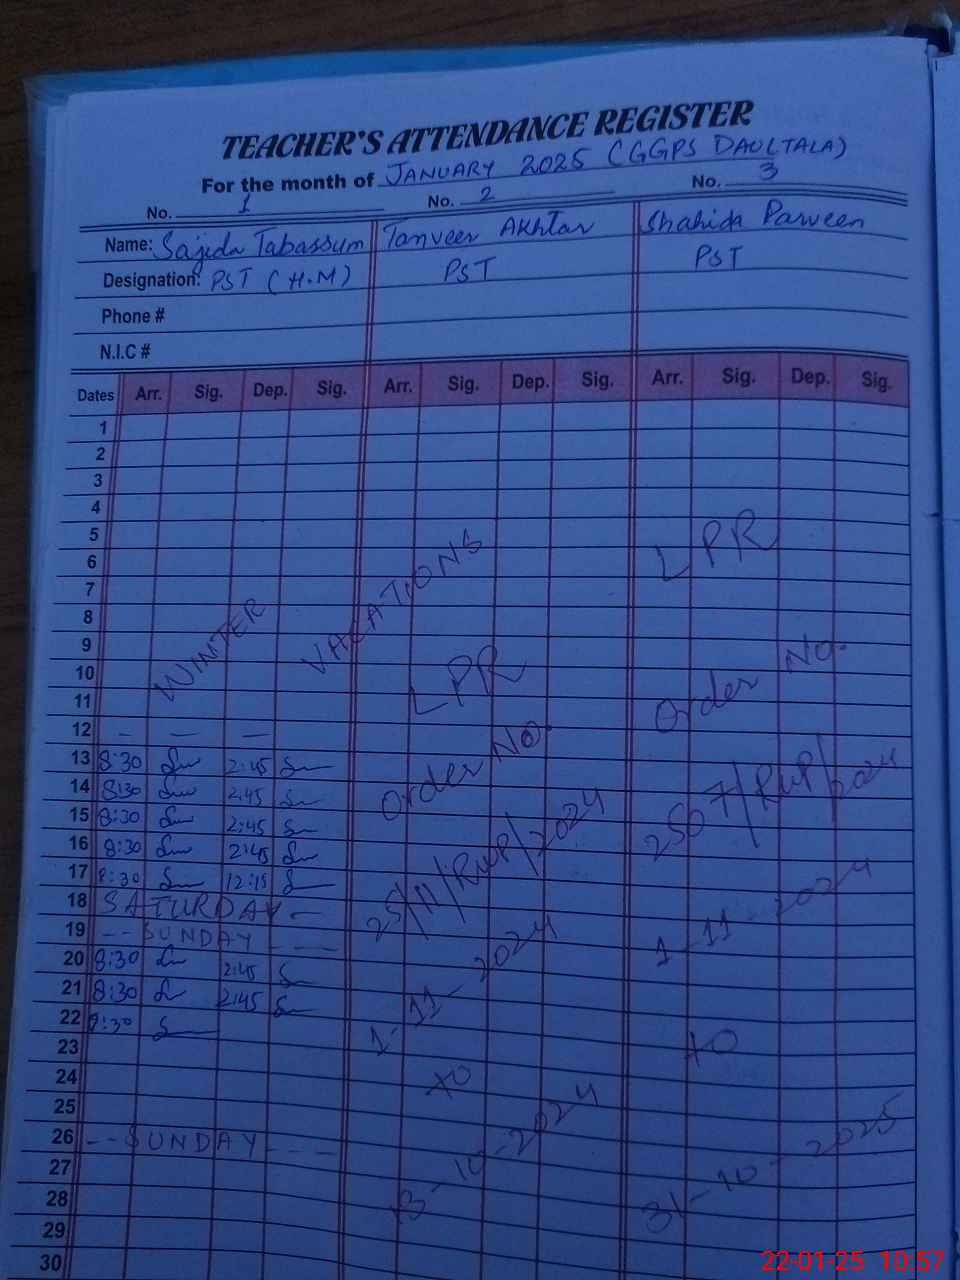 TEACHER'S ATTENDANCE REGISTER
For the month of JANUARY 2025 (GGPS DAULTALA)
No. 1 No. 2 No. 3
Name: Sajida Tabassum Tanveer Akhtar Shahida Parveen
Designation: PST (H.M) PST PST
Phone #
N.I.C #
Dates Arr. Sig. Dep. Sig. Arr. Sig. Dep. Sig. Arr. Sig. Dep. Sig.
1
2
3
4
5
6
7
8
9
10
11
12 — — —
13 8:30 2:45
14 8:30 2:45
15 8:30 2:45
16 8:30 2:45
17 8:30 12:15
18 SATURDAY —
19 -- SUNDAY ---
20 8:30 2:45
21 8:30 2:45
22 8:30
23
24
25
26 -- SUNDAY ---
27
28
29
30
WINTER VACATIONS
LPR
Order No.
25/11/RWP/2024
1-11-2024
to
13-10-2024
LPR
Order No.
2507/RWP/2024
1-11-2024
to
31-10-2025
22-01-25 10:57